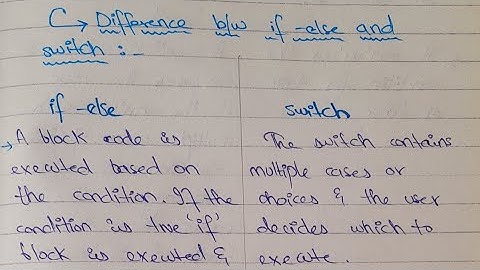 C → Difference b/w if -else and
switch :-
if -else
→ A block code is
executed based on
the condition. If the
condition is true 'if'
block is executed &
switch
The switch contains
multiple cases or
choices & the user
decides which to
execute.